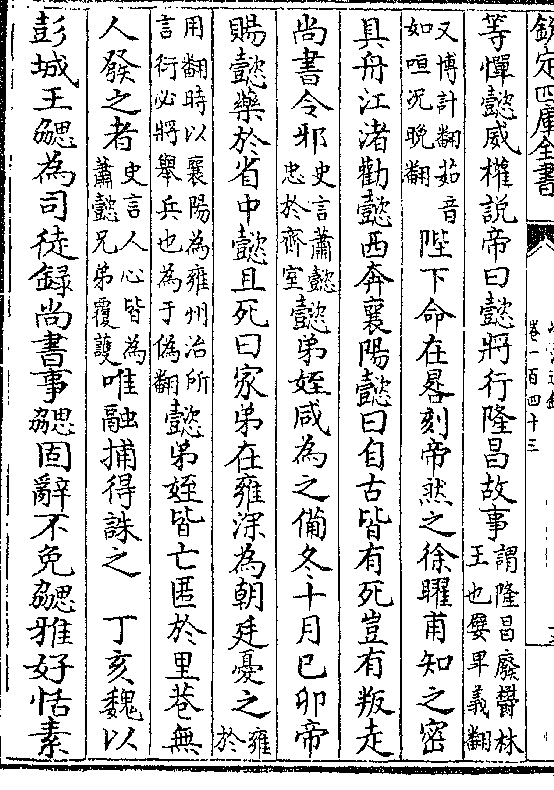 欽定四庫全書
卷一百四十三
等憚懿威權說帝曰懿將行隆昌故事謂隆昌廢鬱林王也嬖卑義翻
又博計翻茹音如咺況晚翻陛下命在晷刻帝然之徐曜甫知之密
具舟江渚勸懿西奔襄陽懿曰自古皆有死豈有叛走
尚書令邪史言蕭懿忠於齊室懿弟姪咸為之備冬十月己卯帝
賜懿藥於省中懿且死曰家弟在雍深為朝廷憂之雍於
用翻時以襄陽為雍州治所言衍必將舉兵也為于偽翻懿弟姪皆亡匿於里巷無
人發之者史言人心皆為蕭懿兄弟覆䕶唯融捕得誅之　丁亥魏以
彭城王勰為司徒録尚書事勰固辭不免勰雅好恬素